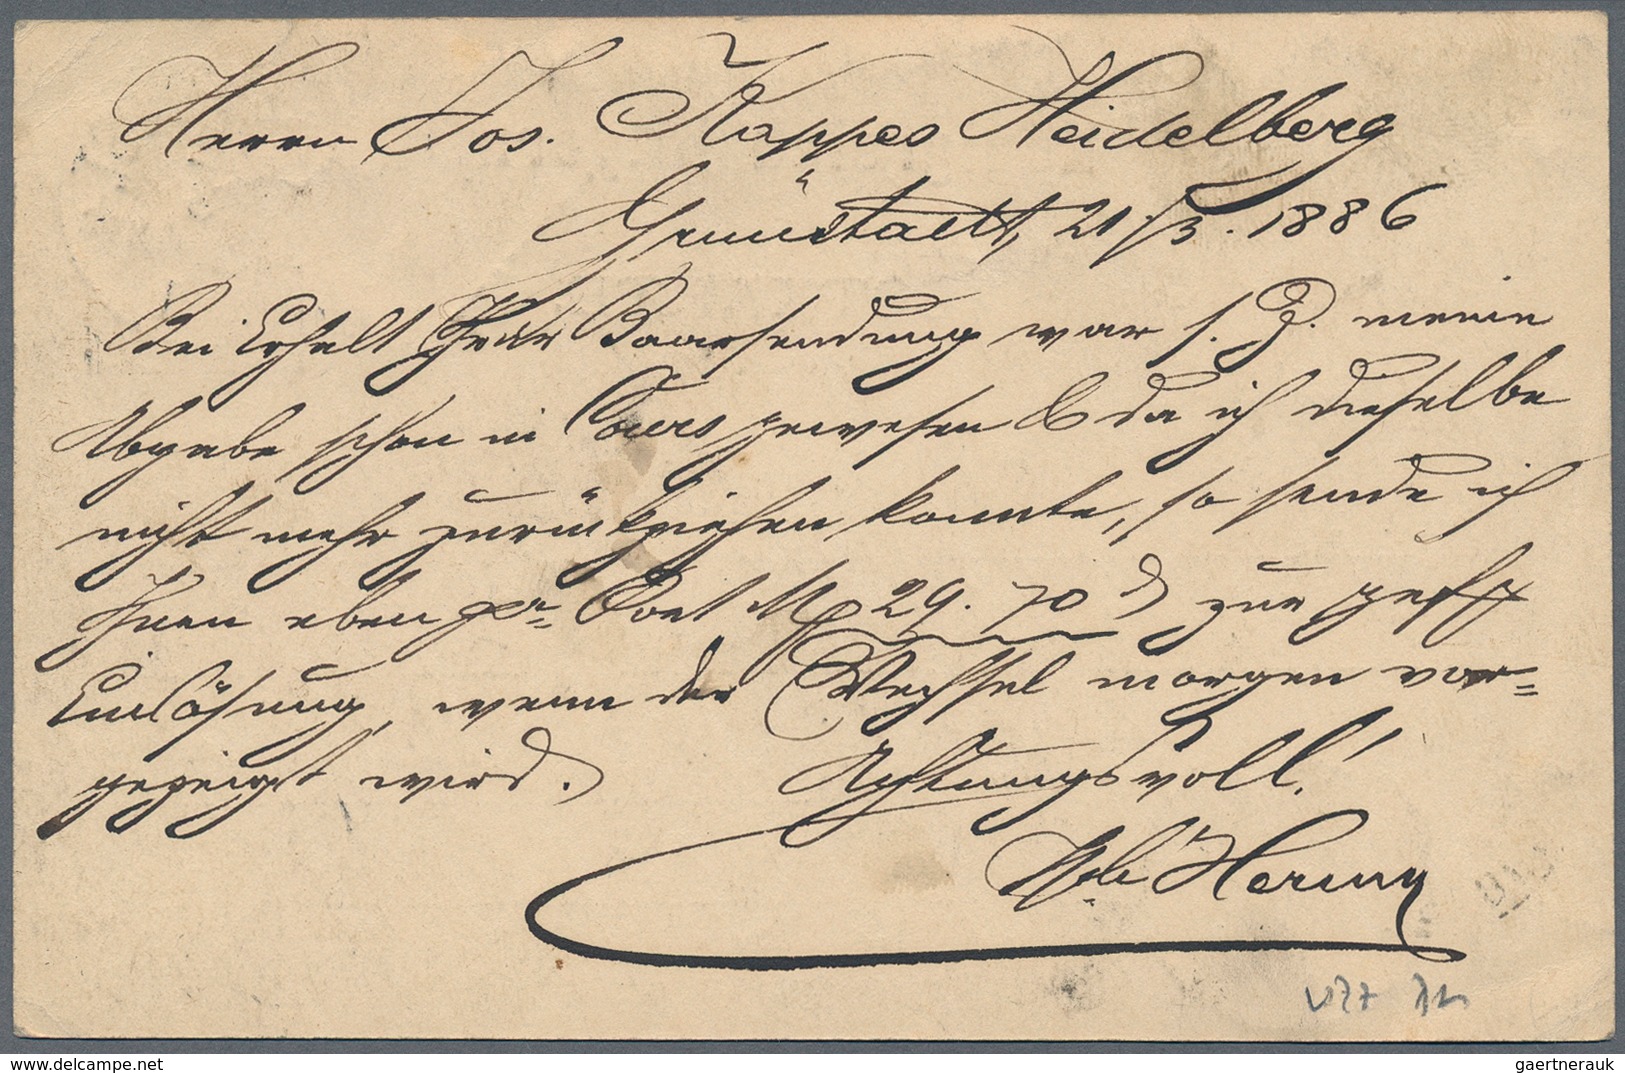 Herrn Jos. Kappes Heidelberg
Grünstadt, 21/3. 1886
Bei Erhalt Ihrer Baarsendung war s. Z. meine
Abgabe schon in Cours gewesen & da ich dieselbe
nicht mehr zurückziehen konnte, so sende ich
Ihnen eben per Post M 29. 70 ₰ zur gefl
Einlösung, wenn der Wechsel morgen vor=
gezeigt wird. Achtungsvoll!
gaertnerauk @ delcampe.net